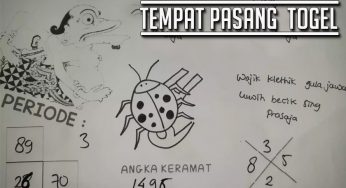 TEMPAT PASANG TOGEL
Wajik klethik gula jawa
Luwih becik sing
Prasaja
PERIODE :
3
89
70
ANGKA KERAMAT
1495
3
8 5
2